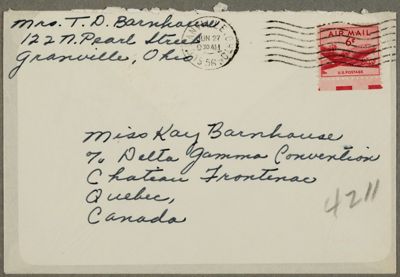 Mrs. T. D. Barnhouse,
122 N. Pearl Street
Granville, Ohio
JUN 27
1956
AIR MAIL
6¢
U.S. POSTAGE
Miss Kay Barnhouse
% Delta Gamma Convention
Chateau Frontenac
Quebec,
Canada
4211